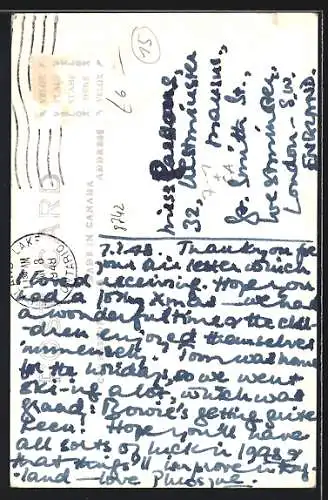 7.1.48. Thank you for
your air letter which
I loved receiving. Hope you
had a jolly Xmas — we had
a wonderful time & the chil-
dren enjoyed themselves
immensely. Tom was home
for the holidays, so we went
ski-ing a lot, which was
grand! getting quite
keen! Hope you'll have
all sorts of luck in 1948 &
that things'll improve in Eng-
land — love
Miss
32, Westminster
Mansions,
Gt. Smith St.,
Westminster,
London - S.W.
ENGLAND.
15
8742
MADE IN CANADA
ADDRESS
LAKE
1948
ONTARIO